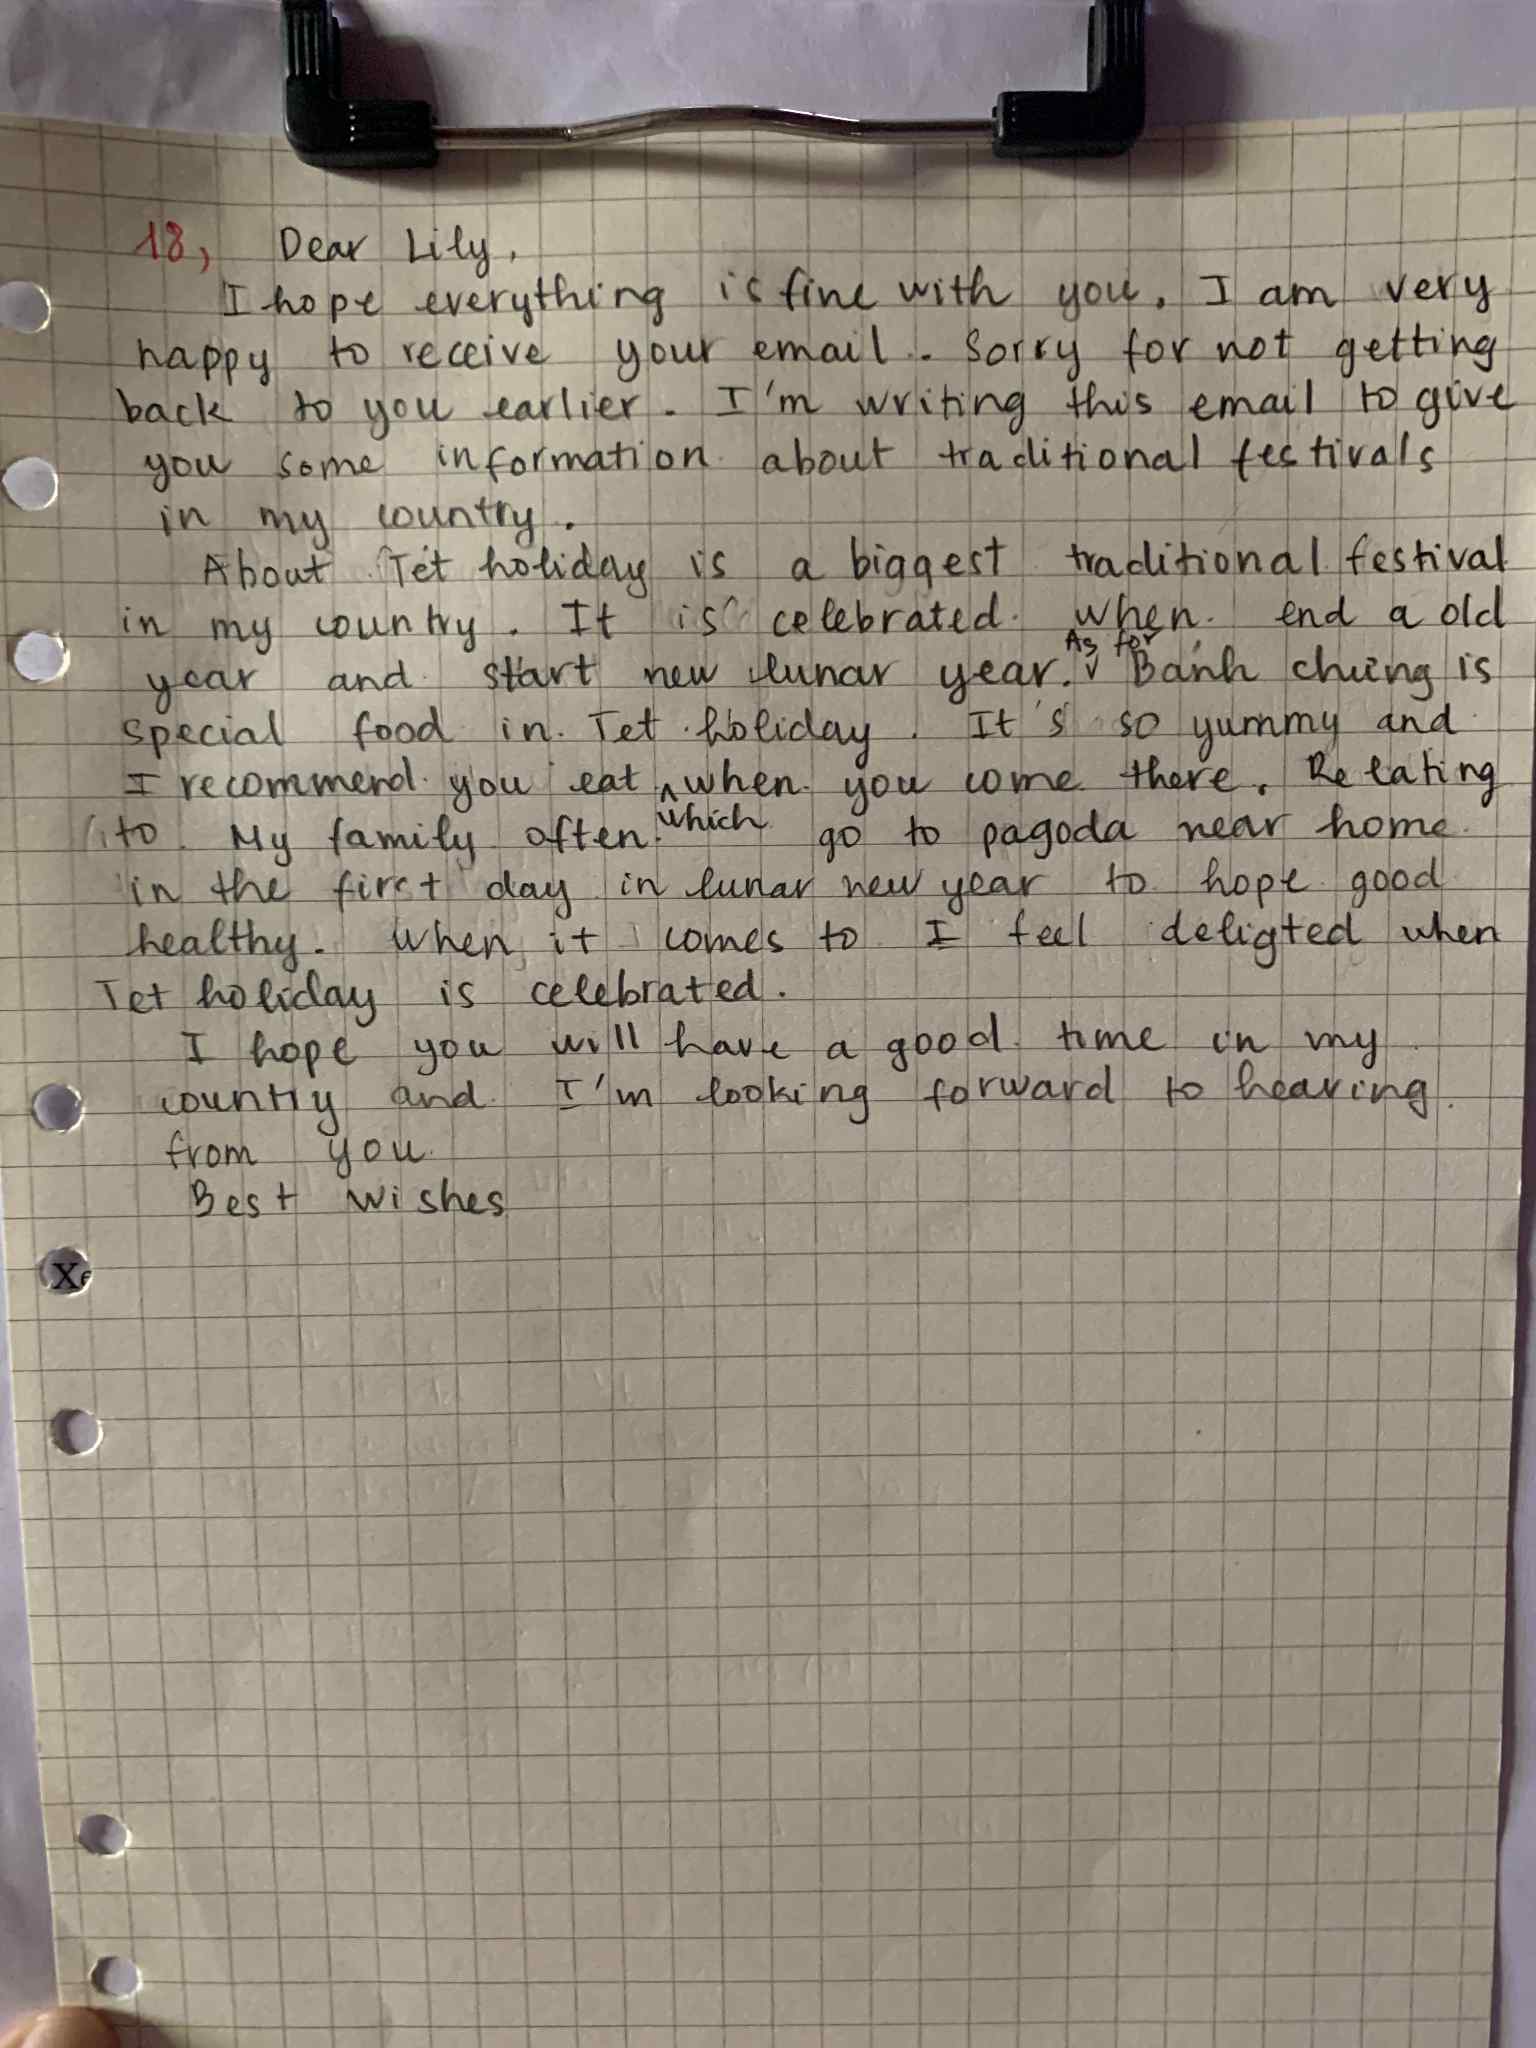 18, Dear Lily,
I hope everything is fine with you. I am very
happy to receive your email. Sorry for not getting
back to you earlier. I'm writing this email to give
you some information about traditional festivals
in my country.
About Tet holiday is a biggest traditional festival
in my country. It is celebrated when end a old
As for
year and start new lunar year. Bánh chưng is
special food in Tet holiday. It's so yummy and
I recommend you eat when you come there. Relating
to My family often which go to pagoda near home
in the first day in lunar new year to hope good
healthy. When it comes to I feel deligted when
Tet holiday is celebrated.
I hope you will have a good time in my
country and I'm looking forward to hearing
from you
Best wishes